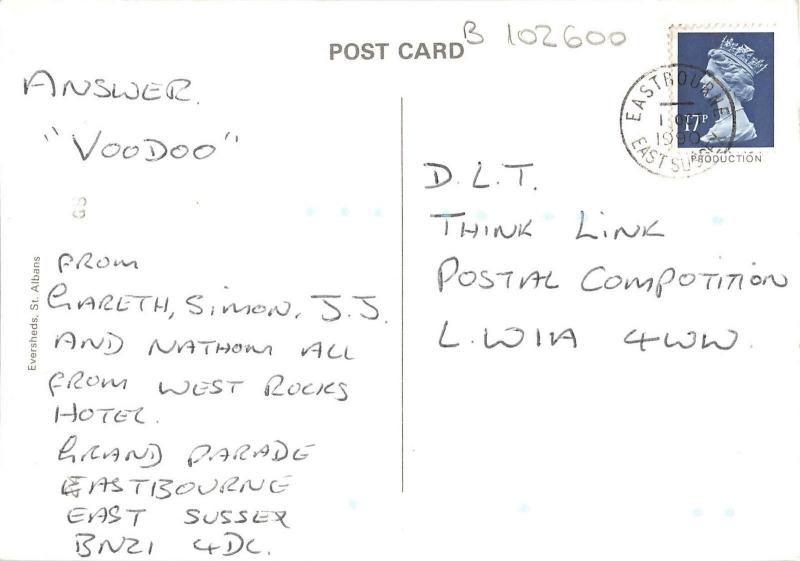 POST CARD
B 102600
ANSWER.
"VOODOO"
GS
FROM
GARETH, SIMON, J.J.
AND NATHOM ALL
FROM WEST ROCKS
HOTEL.
GRAND PARADE
EASTBOURNE
EAST SUSSEX
BN21 4DL.
Eversheds, St. Albans
EASTBOURNE
1990
EAST SUSSEX
17P
PRODUCTION
D.L.T.
THINK LINK
POSTAL COMPOTITION
L.W11A 4WW.